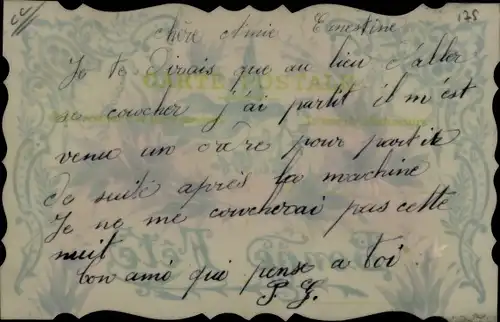 175
chère Amie Ernestine
Je te dirais que au lieu d'aller
CARTE POSTALE
se coucher j'ai partit il m'est
venu un ordre pour partir
de suite après la machine
Je ne me coucherai pas cette
nuit
bon ami qui pense a toi